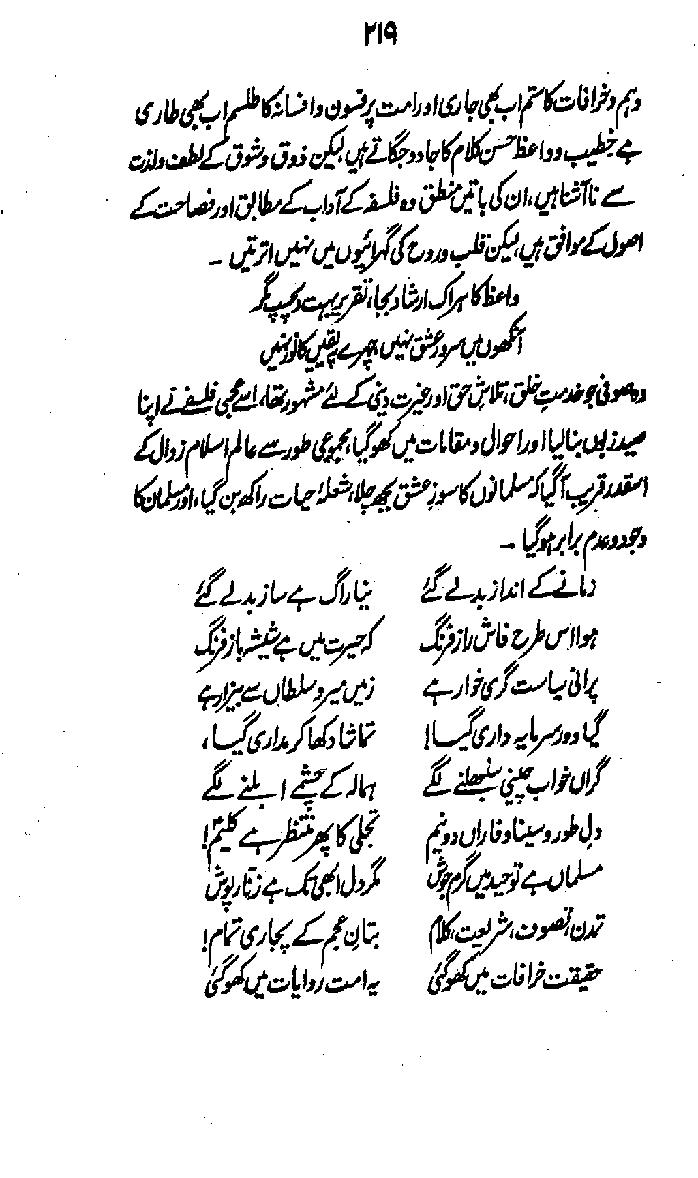 ۲۱۹
وہم وخرافات کا ستم اب بھی جاری اور امت پر فسون وافسانہ کا طلسم اب بھی طاری
ہے خطیب و واعظ حسن کلام کا جادو جگاتے ہیں لیکن ذوق وشوق کے لطف ولذت
سے ناآشنا ہیں، ان کی باتیں منطق وہ فلسفہ کے آداب کے مطابق اور فصاحت کے
اصول کے موافق ہیں، لیکن قلب وروح کی گہرائیوں میں نہیں اترتیں ۔
واعظ کا ہر اک ارشاد بجا، تقریر بہت دلچسپ مگر
آنکھوں میں سرور عشق نہیں، چہرے پہ یقیں کا نور نہیں
وہ صوفی جو خدمتِ خلق، تلاشِ حق اور غیرت دینی کے لئے مشہور تھا، اسے عجمی فلسفے نے اپنا
صید زبوں بنالیا اور احوال ومقامات میں کھو گیا، مجموعی طور سے عالم اسلام زوال کے
اسقدر قریب آگیا کہ مسلمانوں کا سوزِ عشق بجھ چلا، شعلۂ حیات راکھ بن گیا، اور مسلمان کا
وجود وعدم برابر ہوگیا ۔
زمانے کے انداز بدلے گئے نیا راگ ہے ساز بدلے گئے
ہوا اس طرح فاش رازِ فرنگ کہ حیرت میں ہے شیشہ باز فرنگ
پرانی سیاست گری خوار ہے زمیں میر وسلطاں سے بیزار ہے
گیا دور سرمایہ داری گیا! تماشا دکھا کر مداری گیا،
گراں خواب چینی سنبھلنے لگے ہمالہ کے چشمے ابلنے لگے
دلِ طور وسینا وفاراں دونیم تجلی کا پھر منتظر ہے کلیمؑ!
مسلماں ہے توحید میں گرم جوش مگر دل ابھی تک ہے زنّار پوش
تمدن، تصوف، شریعت، کلام بتانِ عجم کے پجاری تمام!
حقیقت خرافات میں کھو گئی یہ امت روایات میں کھو گئی